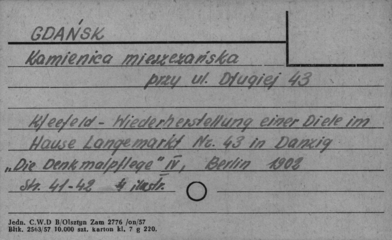 GDAŃSK
Kamienica mieszczańska
przy ul. Długiej 43
Kleefeld - Wiederherstellung einer Diele im
Hause Langemarkt No. 43 in Danzig
„Die Denkmalpflege" IV, Berlin 1902
Str. 41-42 4 ilustr.
Jedn. C.W.D B/Olsztyn Zam 2776 /on/57
Blik. 2563/57 10.000 szt. karton kl. 7 g 220.